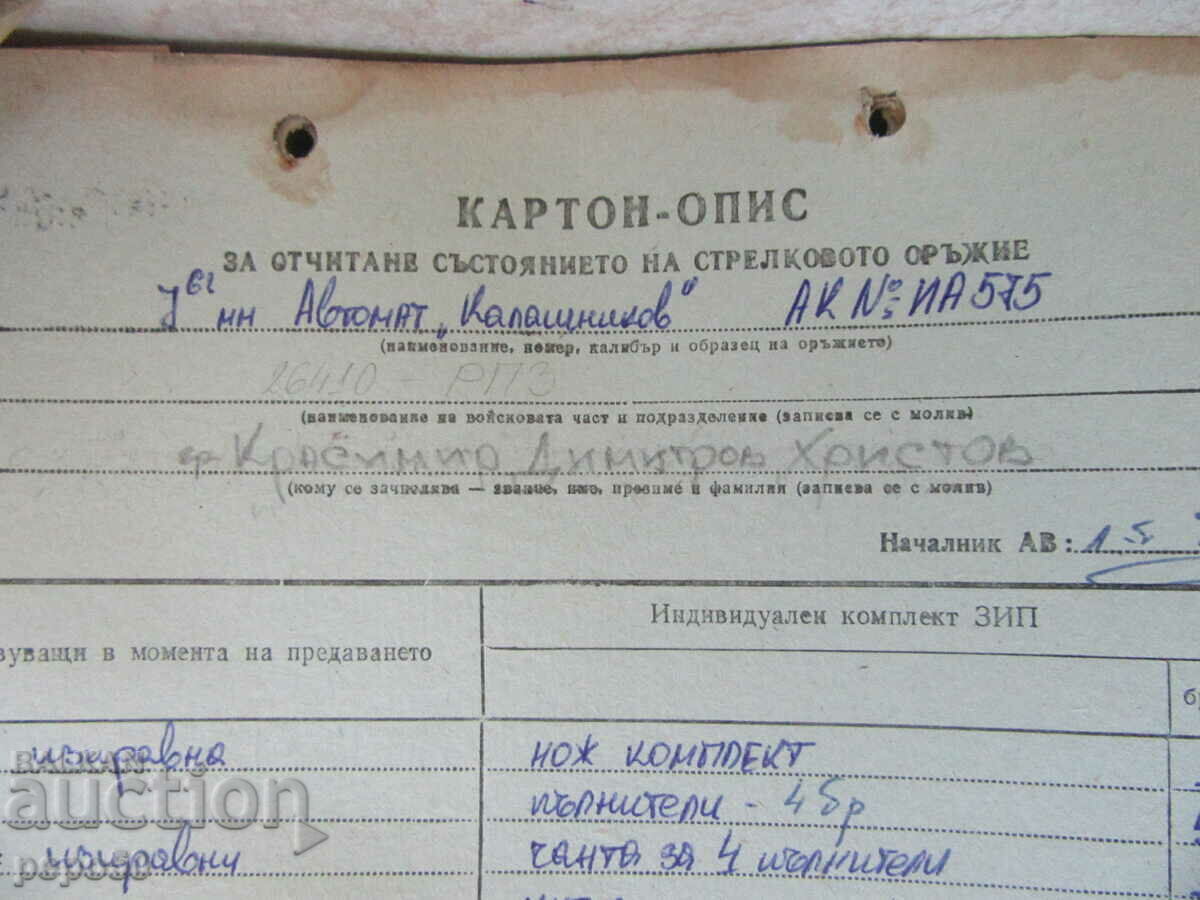 КАРТОН-ОПИС
ЗА ОТЧИТАНЕ СЪСТОЯНИЕТО НА СТРЕЛКОВОТО ОРЪЖИЕ
мм Автомат "Калашников" АК №: ИА 575
(наименование, номер, калибър и образец на оръжието)
26410 - РПЗ
(наименование на войсковата част и подразделение (записва се с молив)
Красимир Димитров Христов
(кому се зачислява — звание, име, презиме и фамилия (записва се с молив)
Началник АВ:
вуващи в момента на предаването
Индивидуален комплект ЗИП
изправна
нож комплект
пълнители - 4 бр
изправни
чанта за 4 пълнители
BALKAN
auction